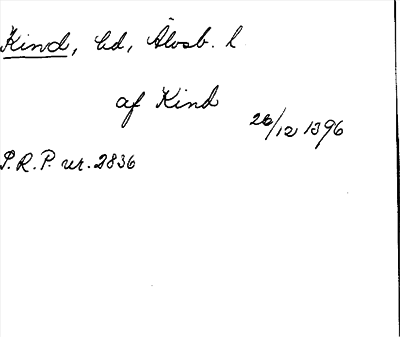 Kind, hd, Älvsb. l.
af Kind
26/12 1396
P.R.P. nr. 2836